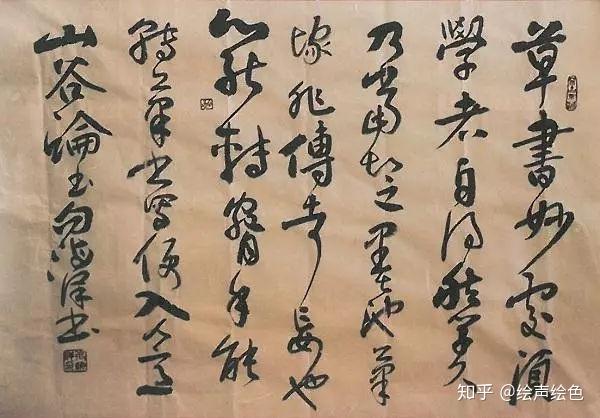 草書妙處須
學者自得然學久
乃當知之墨池筆
塚非傳者妄也
心能轉腕手能
轉筆書寫便入人意
山谷論書句海洋書
知乎 @绘声绘色